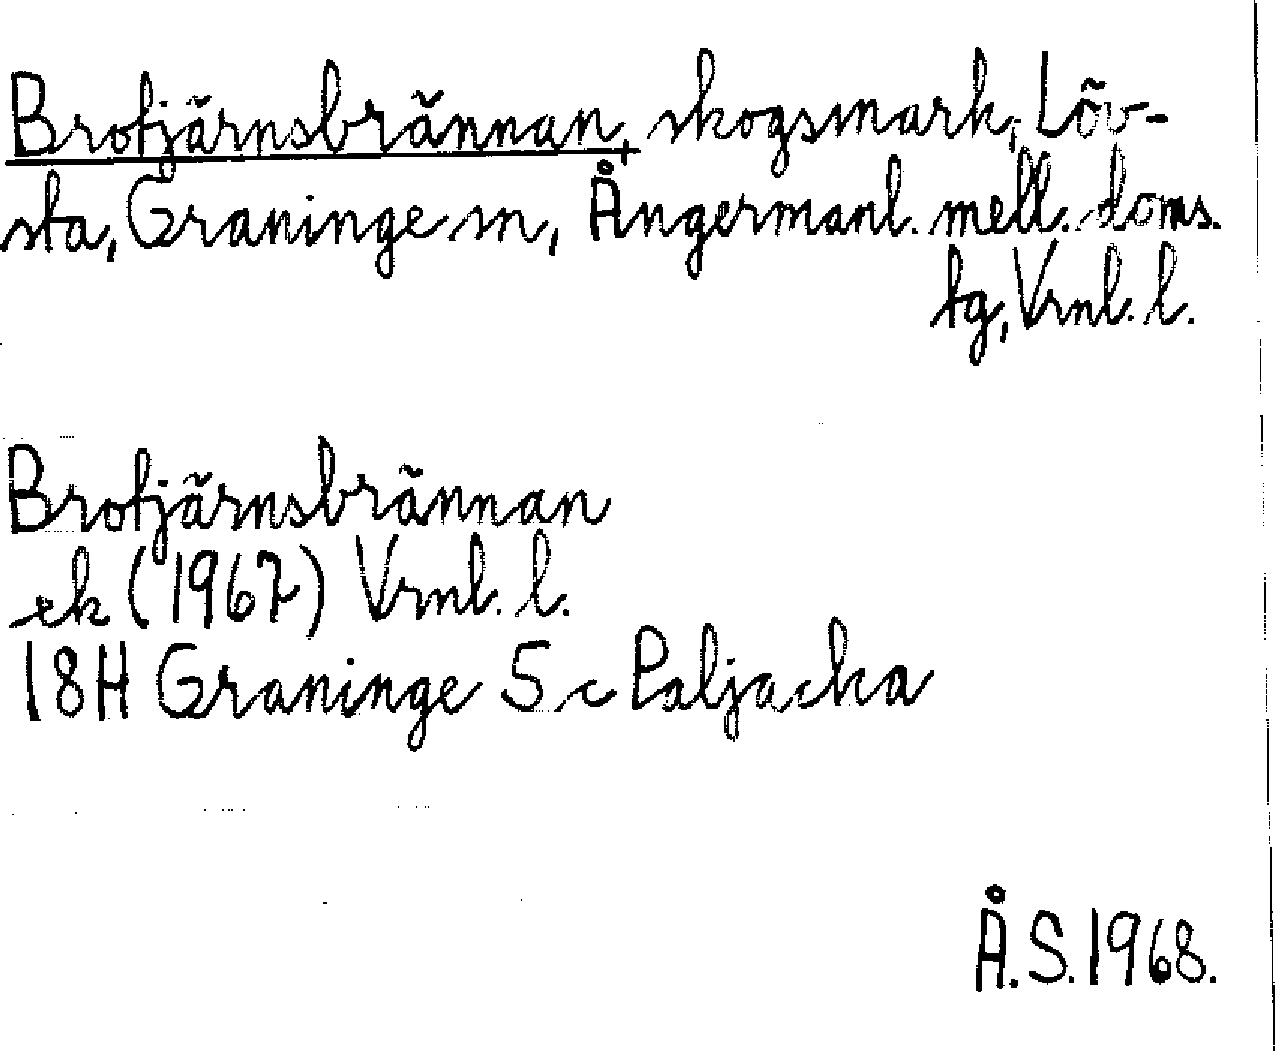 Brotjärnsbrännan, skogsmark, Löv-
sta, Graninge sn, Ångermanl. mell. doms.
tg, Vrnl. l.
Brotjärnsbrännan
ek (1967) Vrnl. l.
18H Graninge 5 c Paljacka
Å.S. 1968.